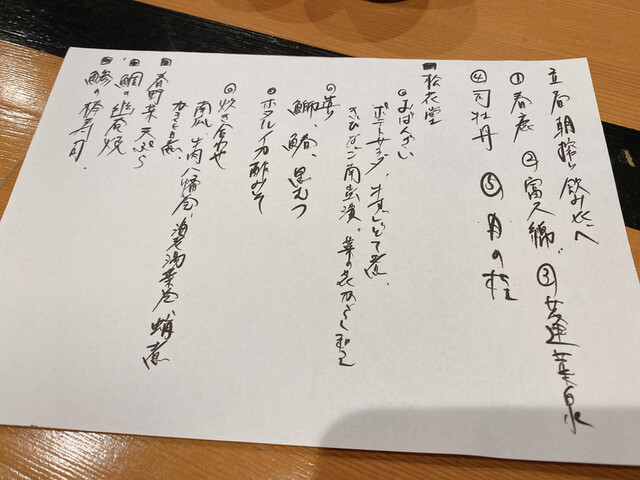 立春朝搾り飲み比べ
①春鹿 ②富久錦 ③安達菜泉
④司牡丹 ⑤月の桂
■松花堂
●おばんざい
ポテトサラダ、牛すじどて煮、
きびなご南蛮漬、菜の花からし和え
●造り
鰤、鰆、黒むつ
●ホタルイカ酢みそ
●炊き合わせ
南瓜、牛肉八幡巻、海老湯葉巻、蛸煮
■春野菜天ぷら
■鯛の幽庵焼
■鯵の棒寿司